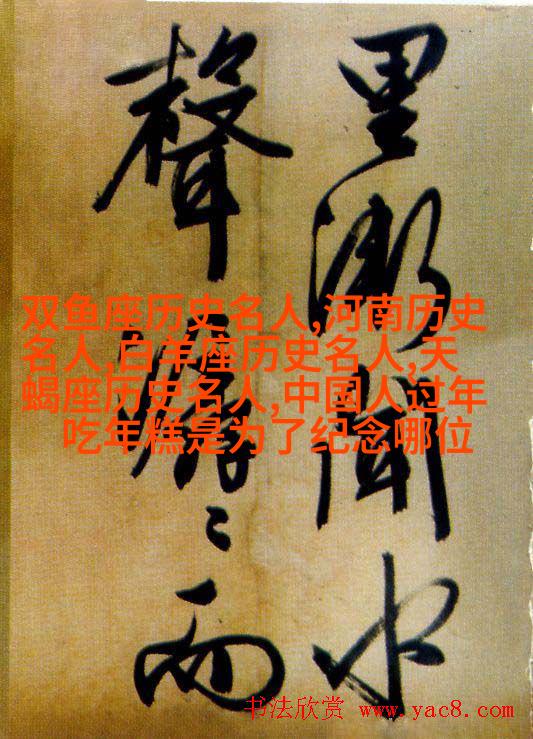 里漸聞水
聲潺〻而
双鱼座历史名人,河南历史
名人,白羊座历史名人,天
蝎座历史名人,中国人过年
吃年糕是为了纪念哪位
书法欣赏 www.yac8.com